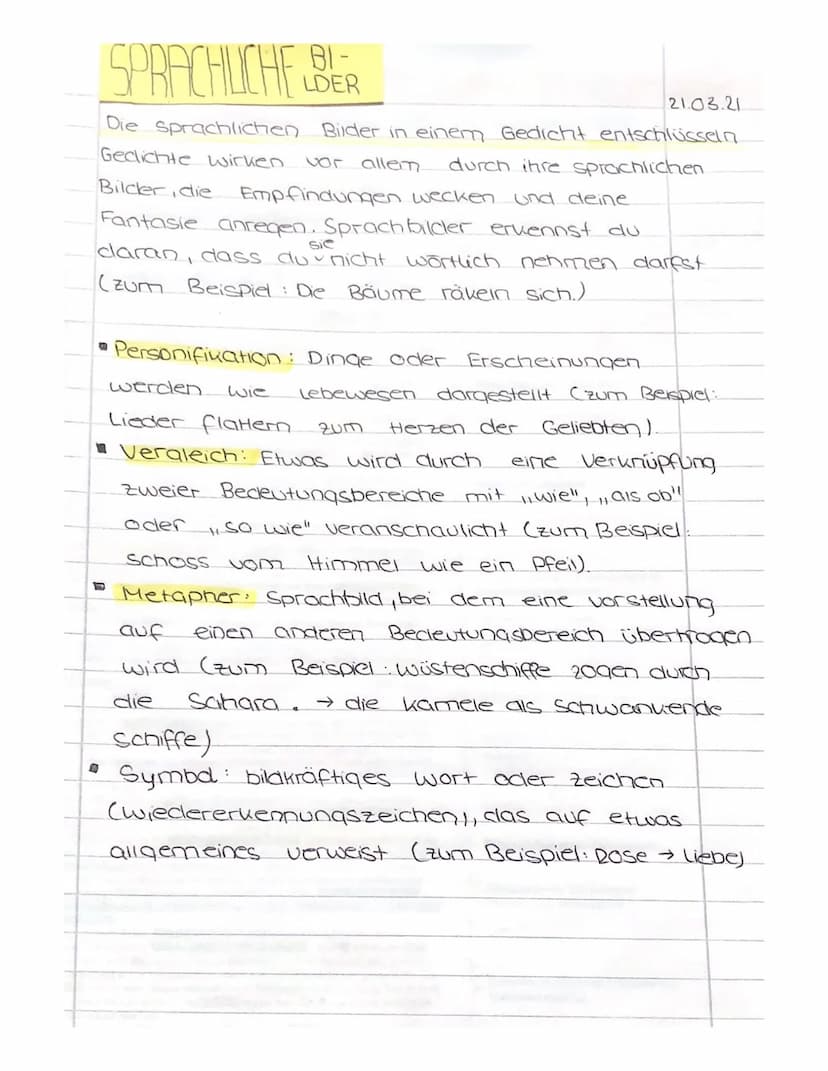 SPRACHLICHE BI-
LDER
21.03.21
Die sprachlichen Bilder in einem Gedicht entschlüsseln
Gedichte wirken vor allem durch ihre sprachlichen
Bilder, die Empfindungen wecken und deine
Fantasie anregen. Sprachbilder erkennst du
daran, dass du sie nicht wörtlich nehmen darfst
(zum Beispiel: Die Bäume räkeln sich.)
Personifikation: Dinge oder Erscheinungen
werden wie Lebewesen dargestellt (zum Beispiel:
Lieder flattern zum Herzen der Geliebten).
Vergleich: Etwas wird durch eine Verknüpfung
zweier Bedeutungsbereiche mit „wie", „als ob"
oder „so wie" veranschaulicht (zum Beispiel:
schoss vom Himmel wie ein Pfeil).
Metapher: Sprachbild, bei dem eine vorstellung
auf einen anderen Bedeutungsbereich übertragen
wird (zum Beispiel: wüstenschiffe zogen durch
die Sahara. → die kamele als schwankende
schiffe)
Symbol: bildkräftiges wort oder zeichen
(wiedererkennungszeichen), das auf etwas
allgemeines verweist (zum Beispiel: Rose → Liebe)